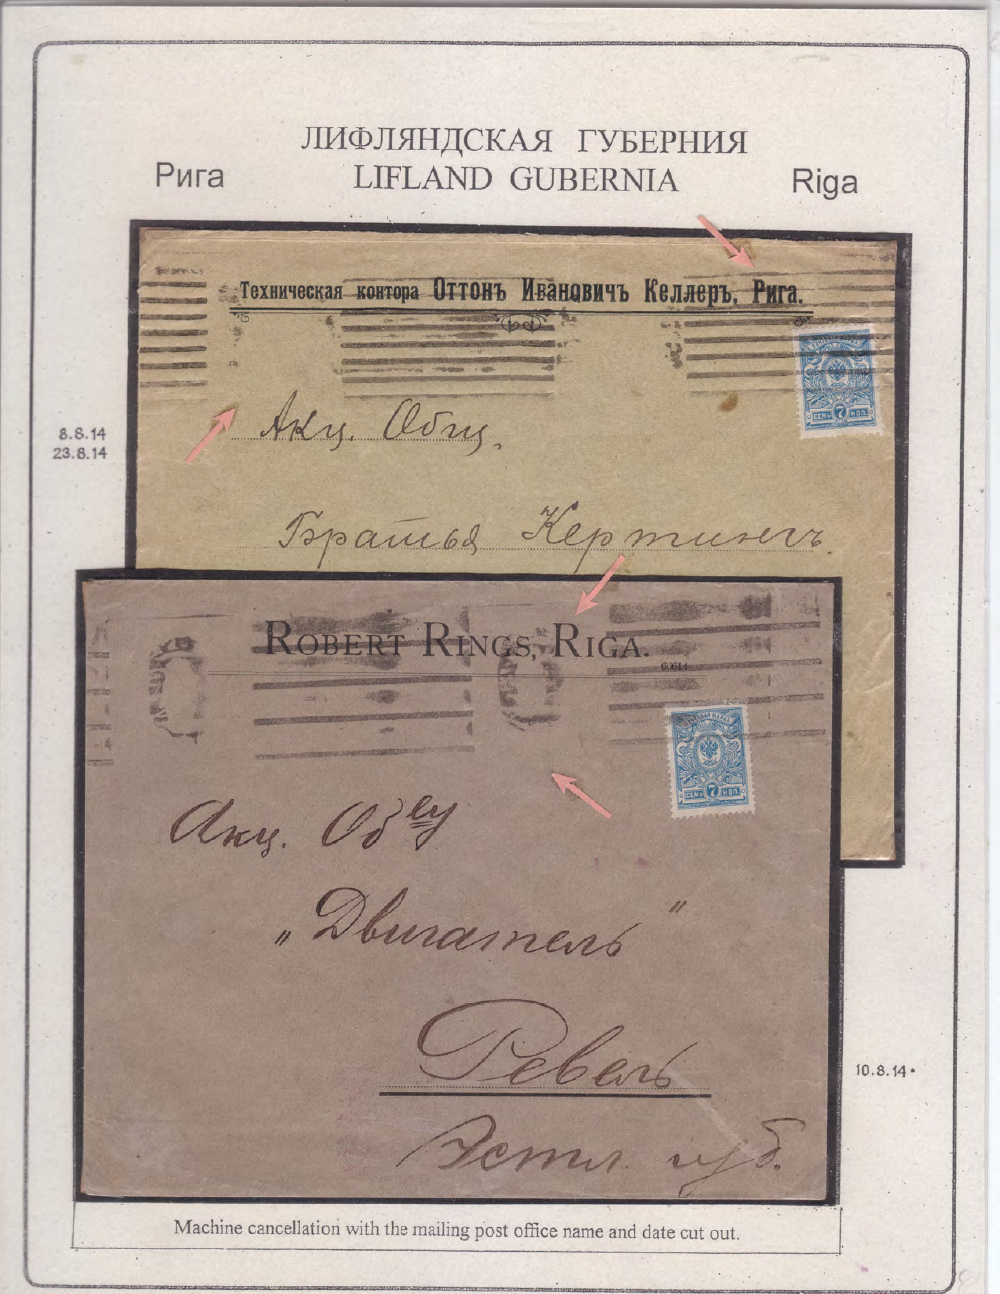 ЛИФЛЯНДСКАЯ ГУБЕРНИЯ
Рига LIFLAND GUBERNIA Riga
Техническая контора Оттонъ Ивановичъ Келлеръ, Рига.
8.8.14
23.8.14
Акц. Общ.
СЕМЬ 7 КОП.
Братья Кертингъ
ROBERT RINGS, RIGA.
СЕМЬ 7 КОП.
Акц. Об ву
„Двигатель"
Ревель
10.8.14
Эстл. губ.
Machine cancellation with the mailing post office name and date cut out.